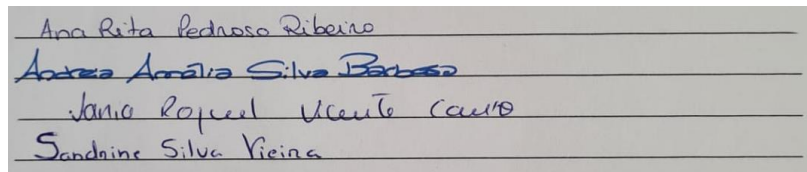 Ana Rita Pedroso Ribeiro
Andreia Amália Silva Barbosa
Vânia Raquel Vicente
Sandrine Silva Vieira